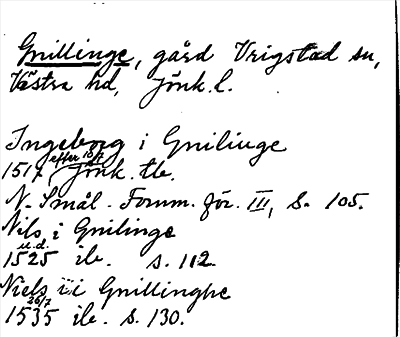 Gnillinge, gård Vrigstad sn,
Västra hd, Jönk. l.
Ingeborg i Gnilinge
1517 efter 10/7 Jönk. tb.
N. Smål. Fornm. för. III, s. 105.
Nils i Gnilinge
1525 u.d. ib. s. 112.
Niels i Gnillinghe
1535 26/7 ib. s. 130.